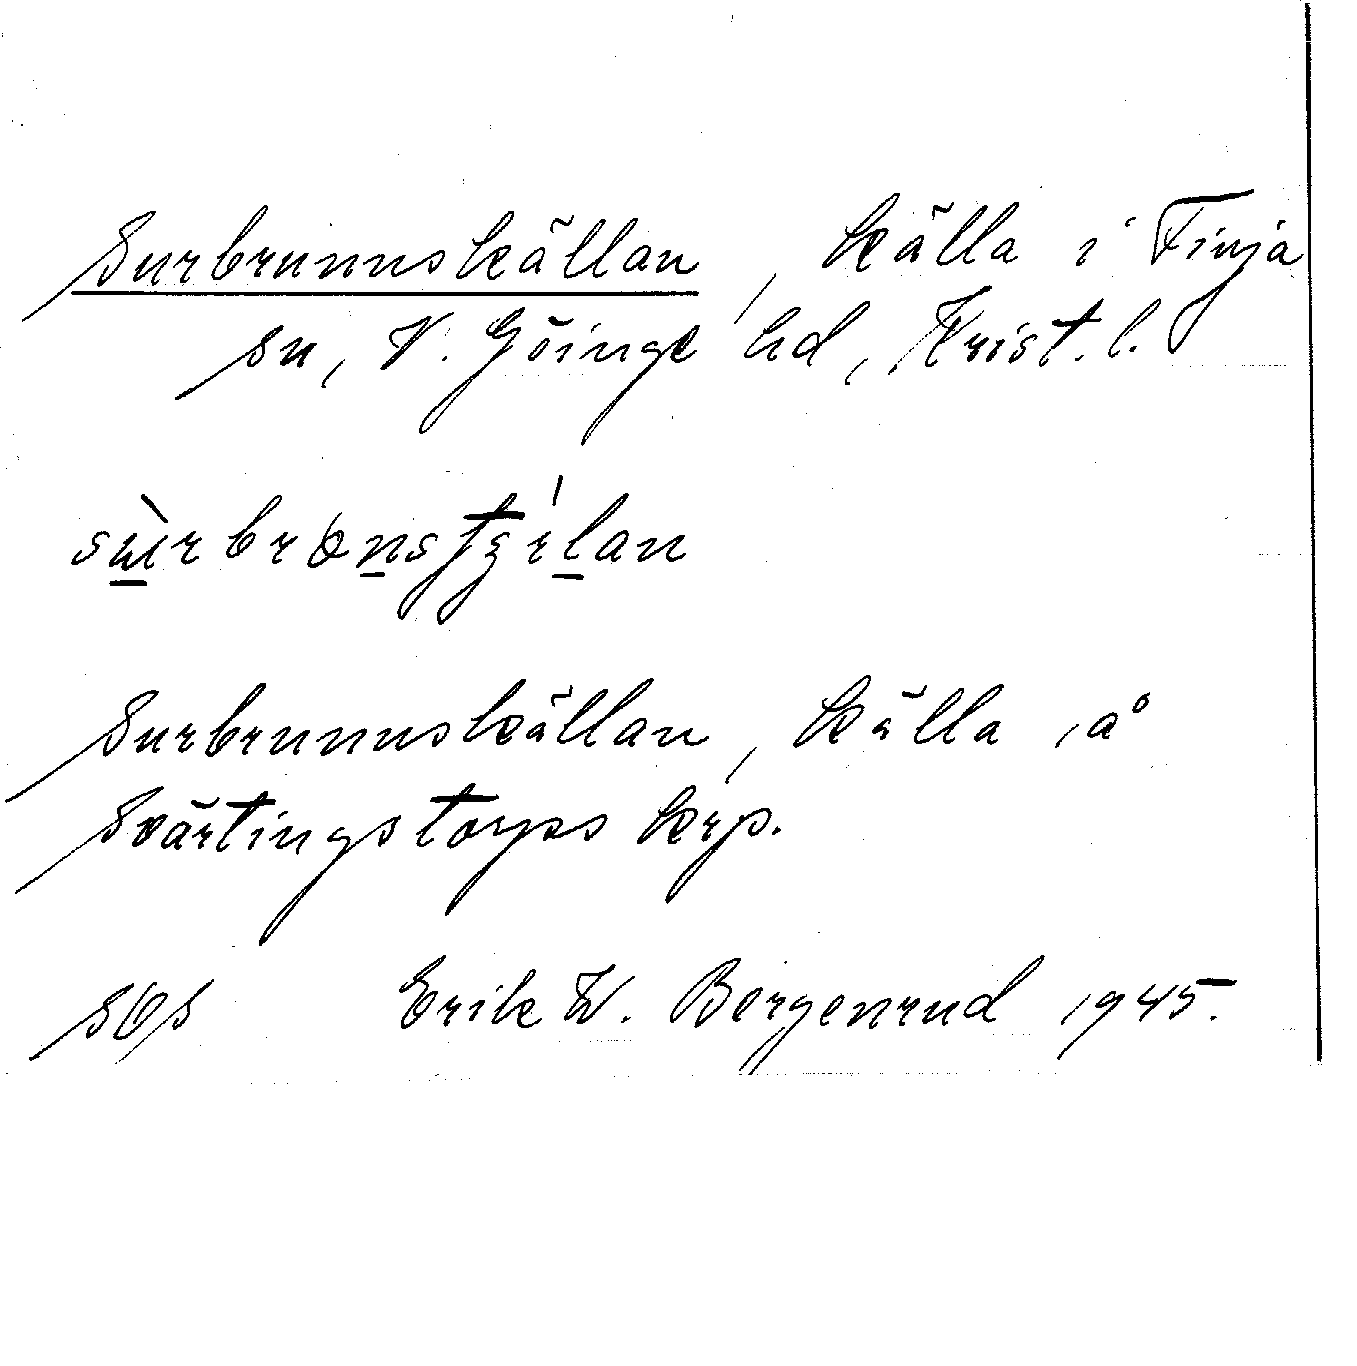 Surbrunnskällan, källa i Finja
sn, V. Göinge hd, Krist. l.
Surbrunnskällan, källa å
Svärtingstorps krp.
Erik W. Bergenrud 1945.